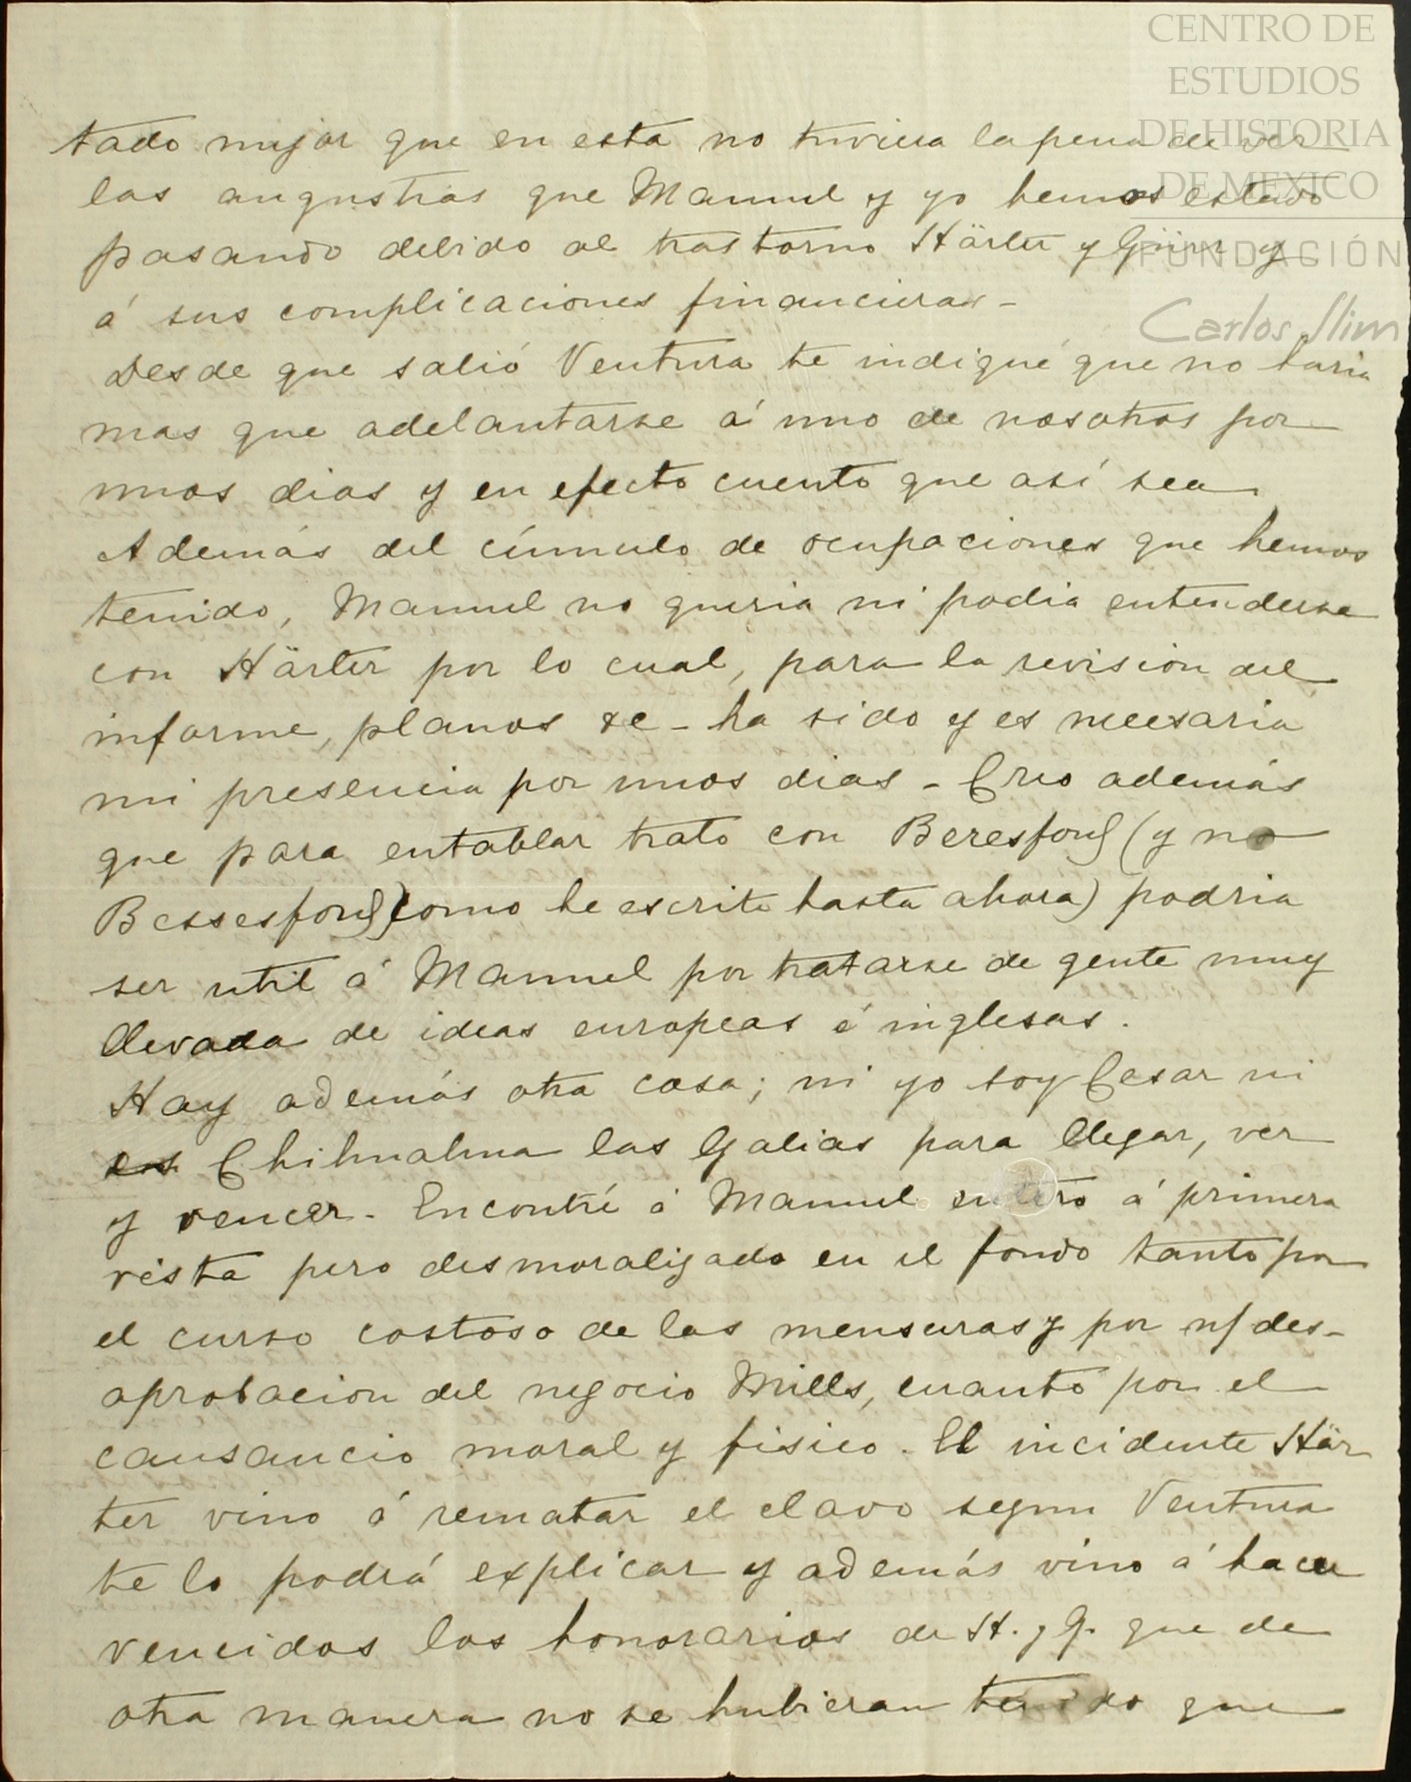 CENTRO DE
ESTUDIOS
DE HISTORIA
DE MEXICO
FUNDACIÓN
Carlos Slim
tado mejor que en esta no tuviera la pena de ver
las angustias que Manuel y yo hemos estado
pasando debido al trastorno Härter y y
á sus complicaciones financieras -
Desde que salió Ventura te indiqué que no haria
mas que adelantarse á uno de nosotros por
unos dias y en efecto cuento que así sea
Además del cúmulo de ocupaciones que hemos
tenido, Manuel no queria ni podia entenderse
con Härter por lo cual, para la revision del
informe, planos &c - ha sido y es necesaria
mi presencia por unos dias - Creo además
que para entablar trato con Beresford (y no
Bessesford como he escrito hasta ahora) podria
ser util á Manuel por tratarse de gente muy
llevada de ideas europeas é inglesas.
Hay además otra cosa; ni yo soy Cesar ni
es Chihuahua las Galias para llegar, ver
y vencer. Encontré á Manuel entero á primera
vista pero desmoralizado en el fondo tanto por
el curso costoso de las mensuras y por n/ des-
aprobacion del negocio Mills, cuanto por el
cansancio moral y fisico. El incidente Här
ter vino á rematar el clavo segun Ventura
te lo podrá explicar y además vino á hacer
vencidos los honorarios de H. y G. que de
otra manera no se hubieran tenido que